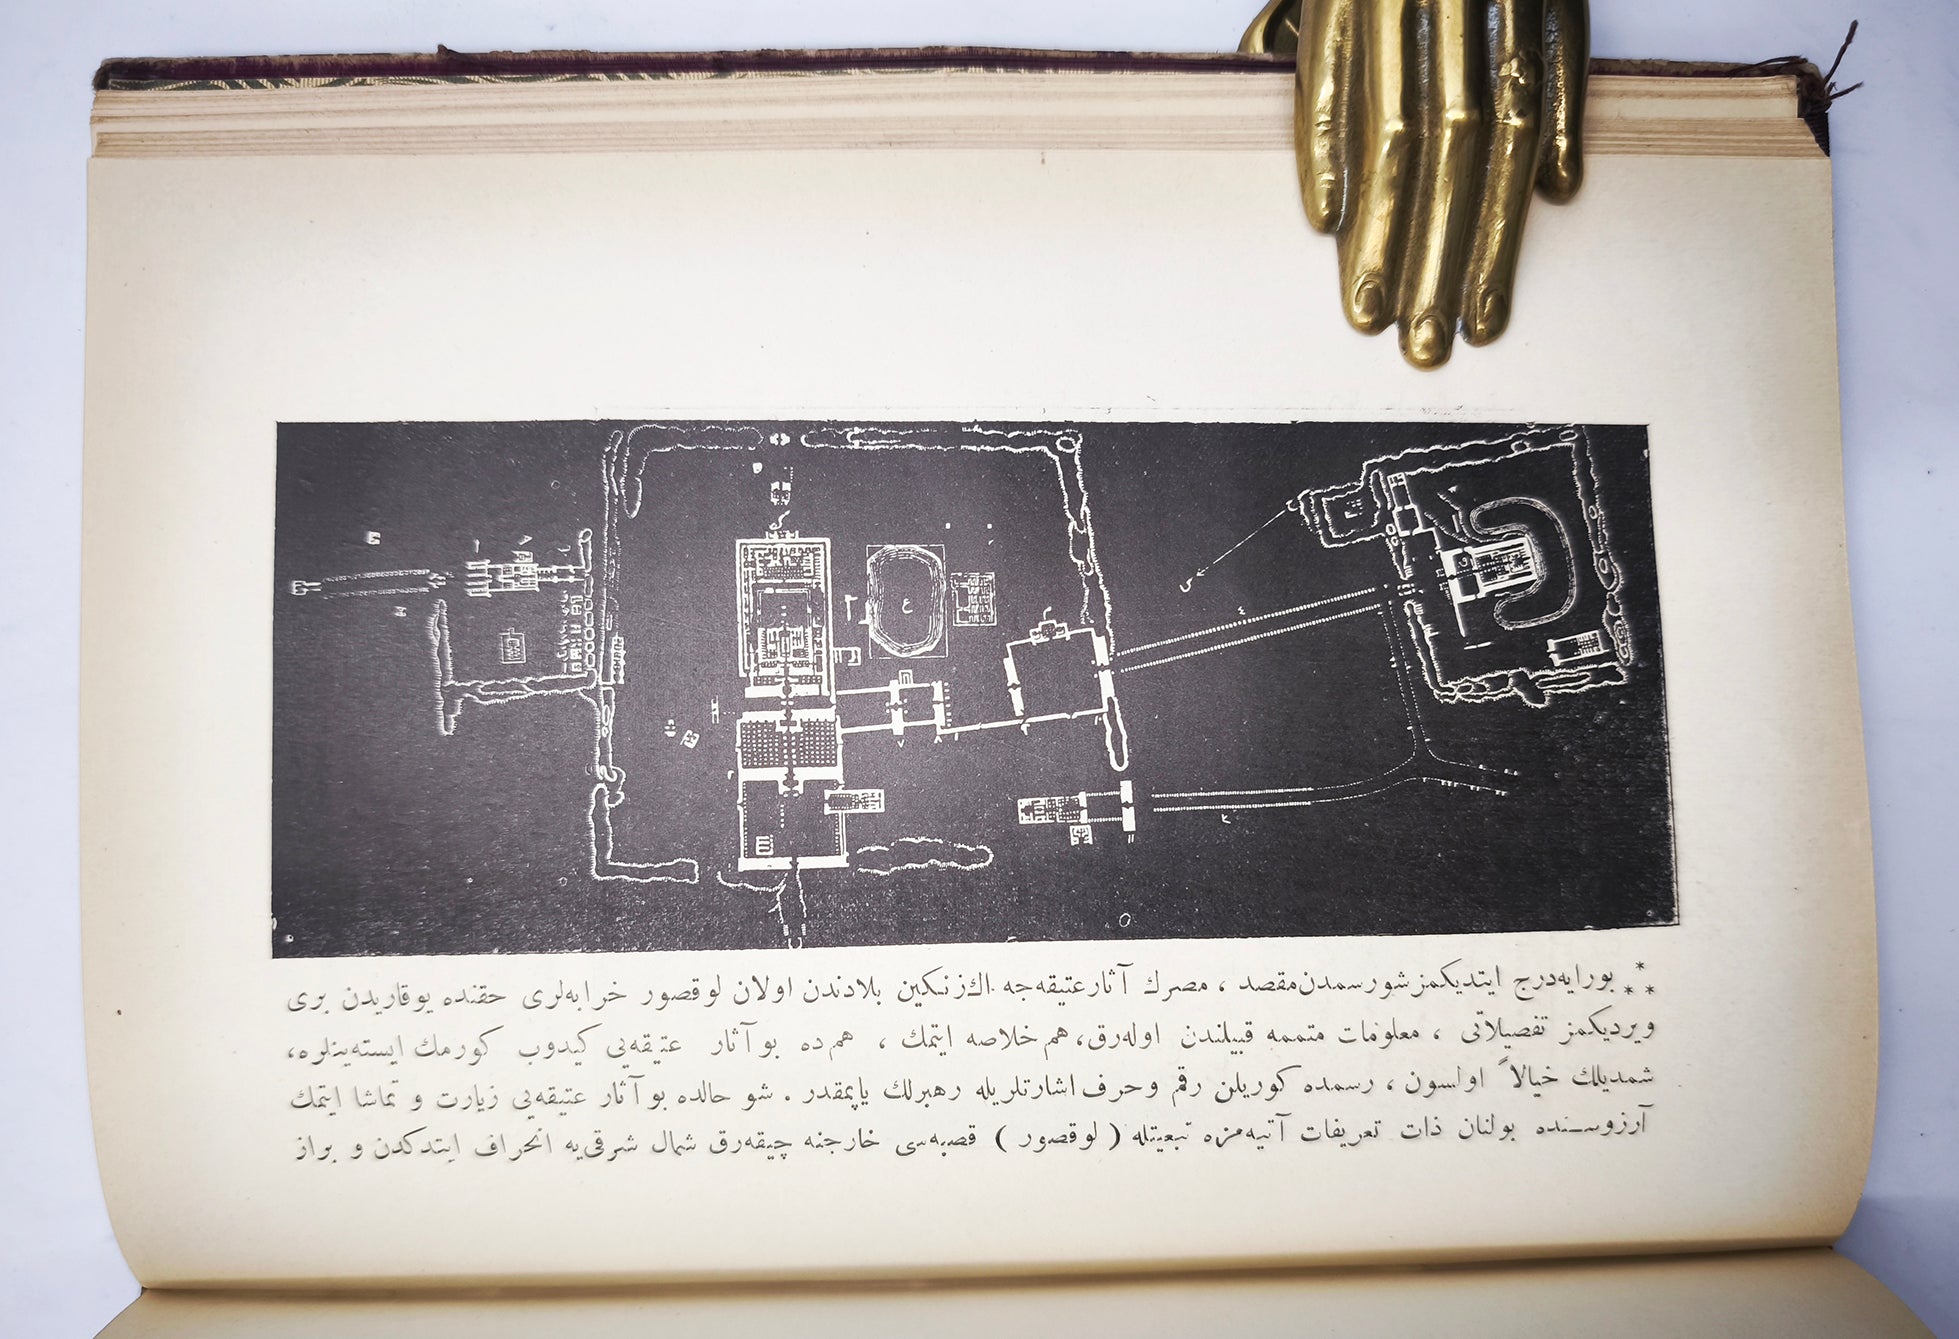 *
* * بورایه‌درج ایتدیکمز شو رسمدن مقصد ، مصرك آثار عتیقه‌جه اك زنكین بلادندن اولان لوقصور خرابه‌لری حقنده یوقاریدن بری
ویردیكمز تفصیلاتی ، معلومات متممه قبیلندن اوله‌رق، هم خلاصه ایتمك ، هم‌ده بو آثار عتیقه‌یی كیدوب كورمك ایسته‌ینلره،
شمدیلك خیالاً اولسون ، رسمده كوریلن رقم وحرف اشارتلریله رهبرلك یاپمقدر . شو حالده بو آثار عتیقه‌یی زیارت و تماشا ایتمك
آرزوسنده بولنان ذات تعریفات آتیه‌مزه تبعیتله ( لوقصور ) قصبه‌سی خارجنه چیقه‌رق شمال شرقی‌یه انحراف ایتدكدن و براز